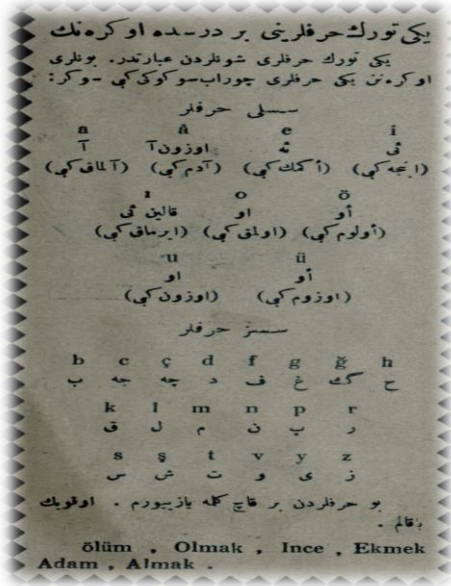 یکی تورك حرفلرینی بر درسده اوكرەنك
یكی تورك حرفلری شونلردن عبارتدر. بونلری
اوكرەنن یكی حرفلری چوراب سوكوكی كبی سوكر:
سسلی حرفلر
a â e i
آ اوزون آ ئه ئی
(آلماق كبی) (آدم كبی) (أكمك كبی) (اینجه كبی)
ı o ö
قالین ئی او أو
(ایرماق كبی) (اولمق كبی) (أولوم كبی)
u ü
او أو
(اوزون كبی) (اوزوم كبی)
سسسز حرفلر
b c ç d f g ğ h
ب جه چه د ف غ گ ح
k l m n p r
ق ل م ن پ ر
s ş t v y z
س ش ت و ی ز
بو حرفلردن بر قاچ كله یازییورم . اوقویك
باقالم .
ölüm , Olmak , Ince , Ekmek
Adam , Almak .